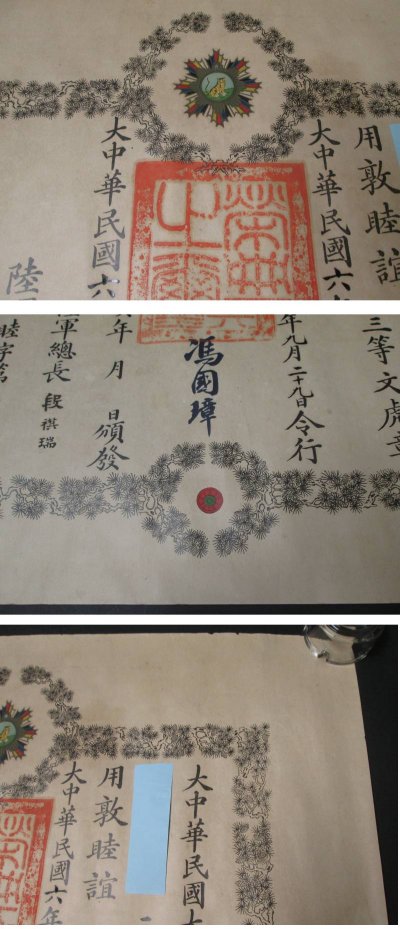 用敦睦誼
大中華民國六年
榮典之璽
大中華民國六
陸
三等文虎章
年九月二十九日令行
馮國璋
年 月 日頒發
軍總長 段祺瑞
睦字第
大中華民國大
用敦睦誼
大中華民國六年
榮